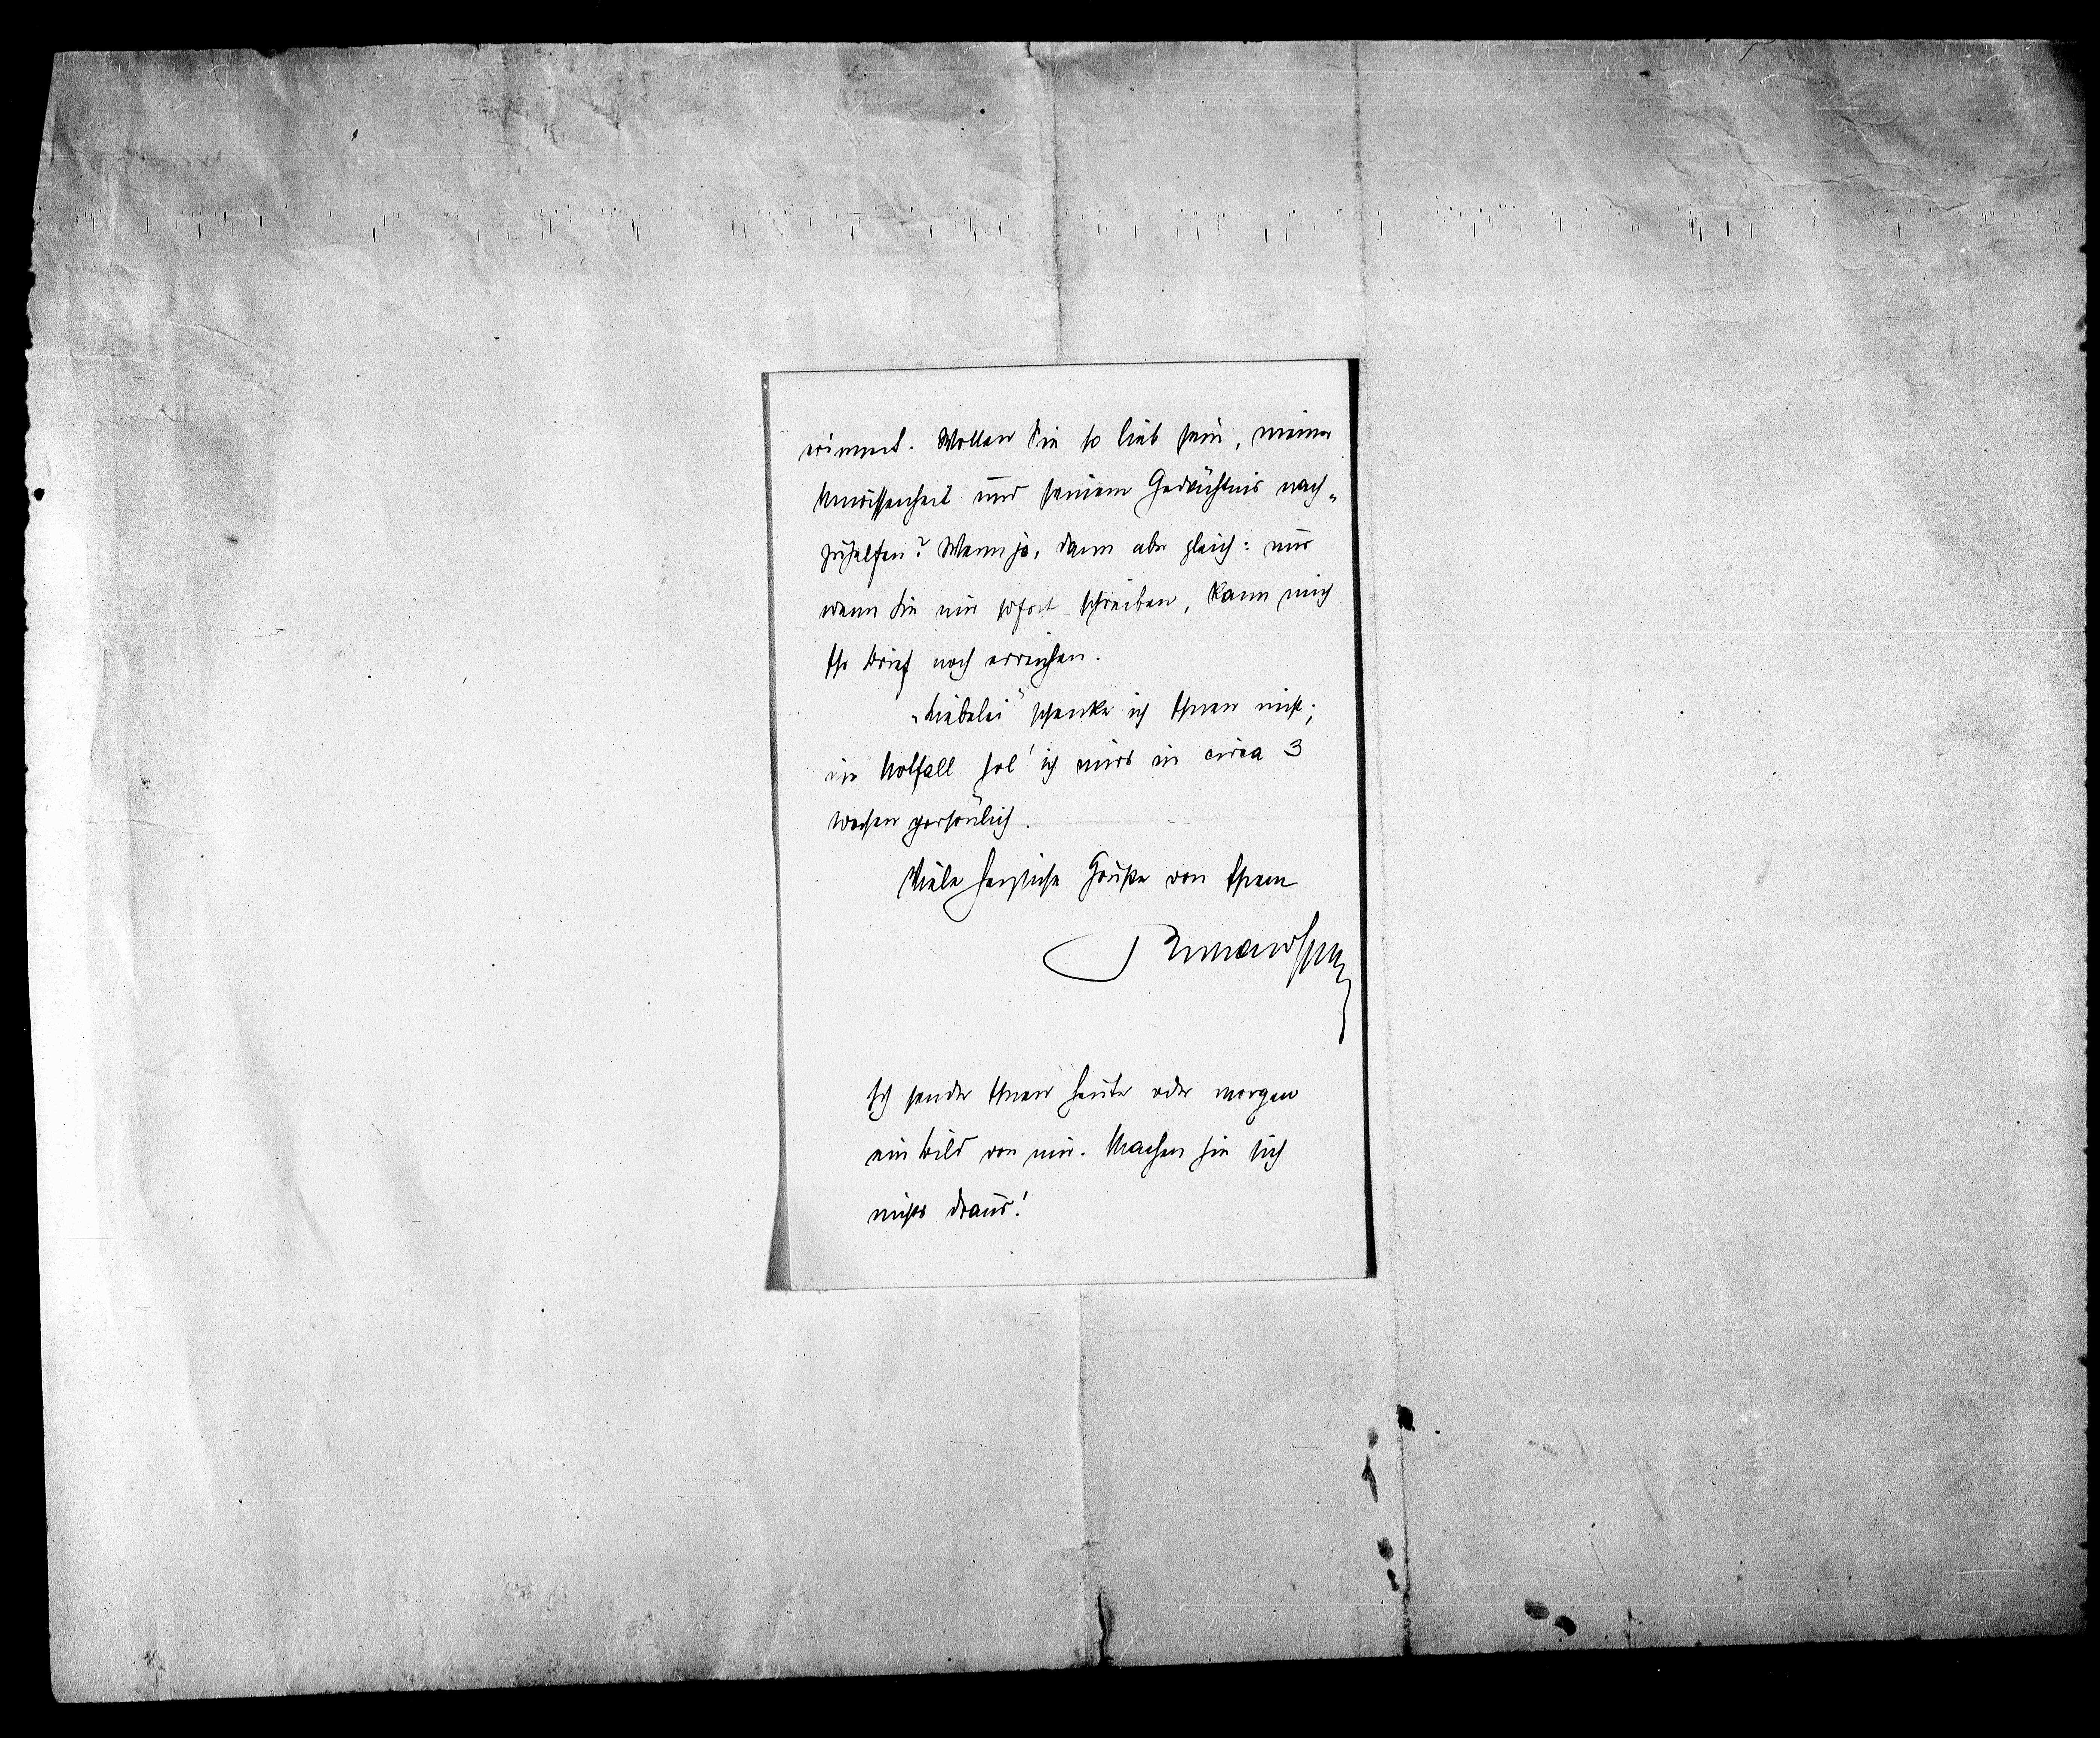 erinnert. Wollen Sie so lieb sein, meiner
Unwissenheit und seinem Gedächtnis nach-
zuhelfen? Wenn ja, dann aber gleich: nur
wenn Sie mir sofort schreiben, kann mich
Ihr Brief noch erreichen.
„Liebelei“ schenke ich Ihnen nicht;
im Notfall hol' ich mirs in circa 3
Wochen persönlich.
Viele herzliche Grüße von Ihrem
Ich sende Ihnen heute oder morgen
ein Bild von mir. Machen Sie sich
nichts draus!